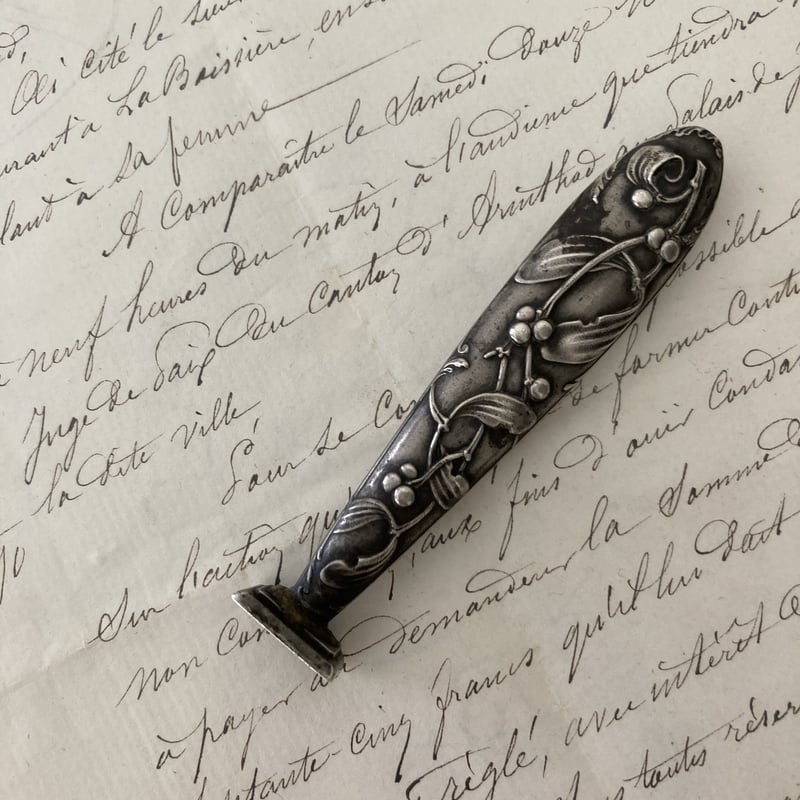 Oci cité le
courant à La Boissière, en
lant à sa femme
A Comparaître le Samedi douze
à neuf heures du matin, à l'audience que tiendra
Juge de Paix du Canton d'Arinthod au Palais de
la dite ville,
Pour se Con se former Contr
Sur l'action qu , aux fins d'ouir Conda
non Con
à payer au demandeur la Somme
Septante-cinq francs qu'il lui doit
réglé, avec intérêt
toutes réser